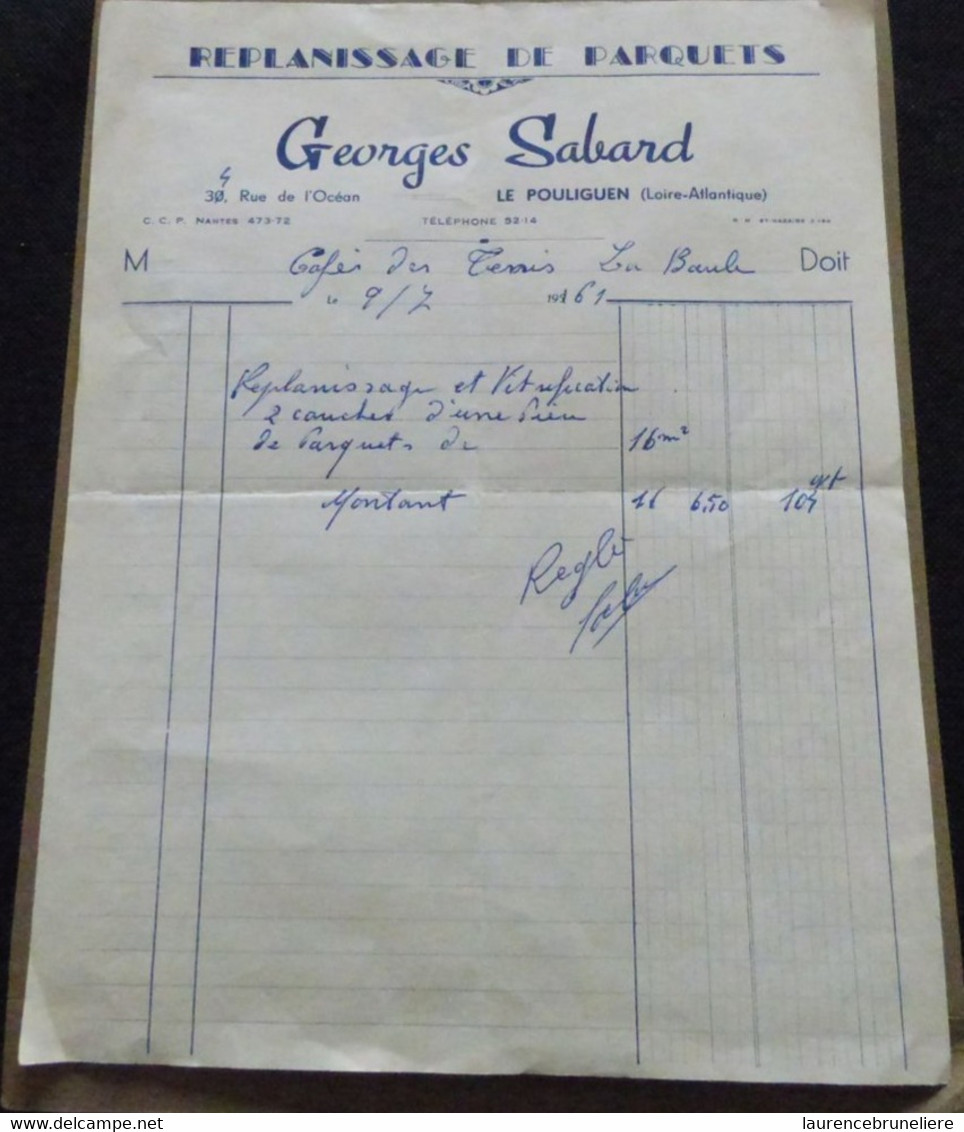 REPLANISSAGE DE PARQUETS
Georges Sabard
34, Rue de l'Océan LE POULIGUEN (Loire-Atlantique)
C. C. P. NANTES 473-72 TÉLÉPHONE 52-14
M Cafés des Tennis La Baule Doit
le 9/7 1961
Replanissage et Vitrification
2 couches d'une Pièce
de Parquets de 16 m²
Montant 16 6,50 104
Reglé
laurencebruneliere